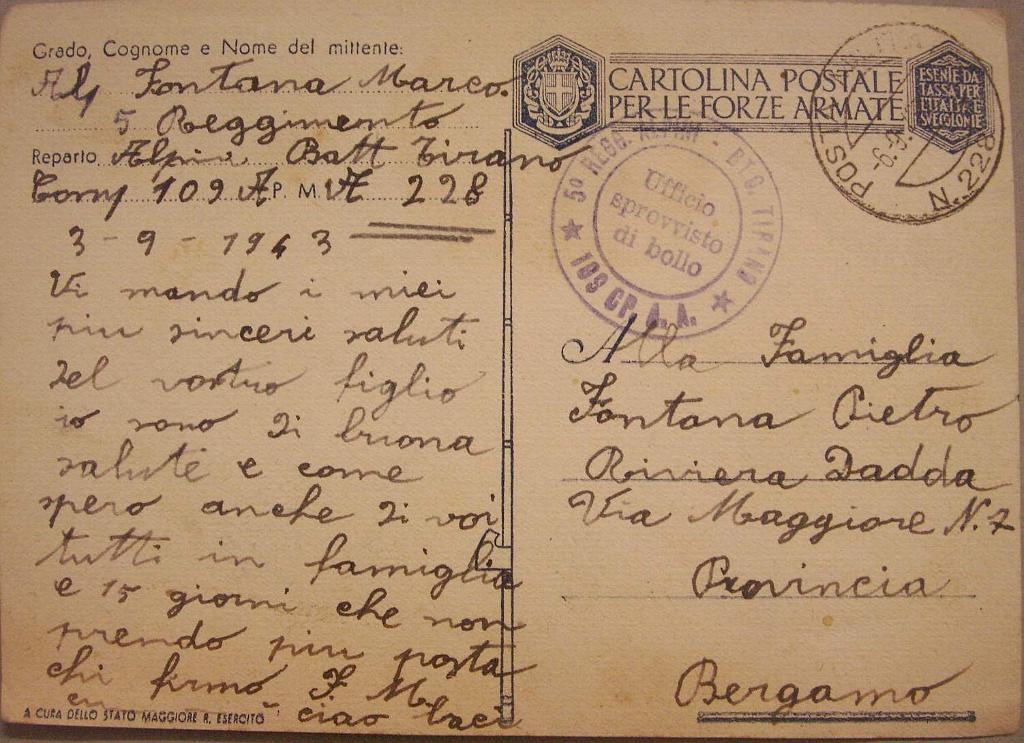 Grado, Cognome e Nome del mittente:
Alp Fontana Marco
5 Reggimento
Reparto Alpini Batt Tirano
Comp 109 A P. M. A 228
3 - 9 - 1943
Vi mando i miei
piu sinceri saluti
del vostro figlio
io sono di buona
salute e come
spero anche di voi
tutti in famiglia
e 15 giorni che non
prendo piu posta
chi firmo F. M.
ciao baci
A CURA DELLO STATO MAGGIORE R. ESERCITO
CARTOLINA POSTALE
PER LE FORZE ARMATE
ESENTE DA
TASSA PER
L'ITALIA E
SUE COLONIE
POSTA
N. 228
5º REGG. ALPINI - BTG. TIRANO
109 CP. A. A.
Ufficio
sprovvisto
di bollo
Alla Famiglia
Fontana Pietro
Riviera Dadda
Via Maggiore N. 7
Provincia
Bergamo